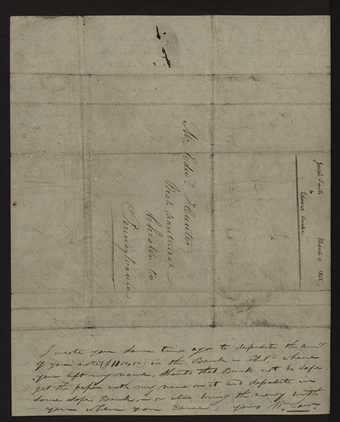 Mr. Edwd. Hunter
West Nantmeal
Chester Co
Pennsylvania
Joseph Smith
to
Edward Hunter
March 9 1842
I wrote you some time ago to deposite the am't
of your note ($1100.00) in the Bank where
you left my name, should that Bank not be safe
get the papers with my name on it and deposite in
some safe Bank, or else bring the money with
you when you come, yours Wm Law